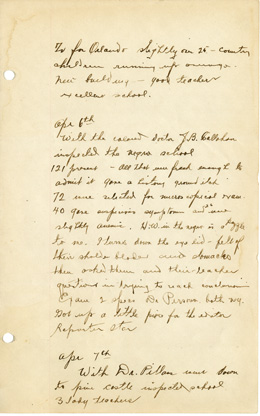 for Orlando slightly over 25 - country
children running up
New building - good teacher
excellent school.
Apr 6th
With the colored doctor J.B. Callahan
inspected the negro school
131 present - all that were frank enough to
admit it gave a history ground itch
72 were selected for microscopical exam.
40 gave symptoms and were
slightly anemic. H.W. in the negro is
to me. I turned down the eye lid - felt of
their shoulder blades and stomachs
then asked them and their teacher
questions in trying to reach conclusion
Exam 2 spec Dr Person both neg.
Got up a little for the
Reporter Star
Apr 7th
With Dr. went down
to pine castle inspected school
3 lady teachers